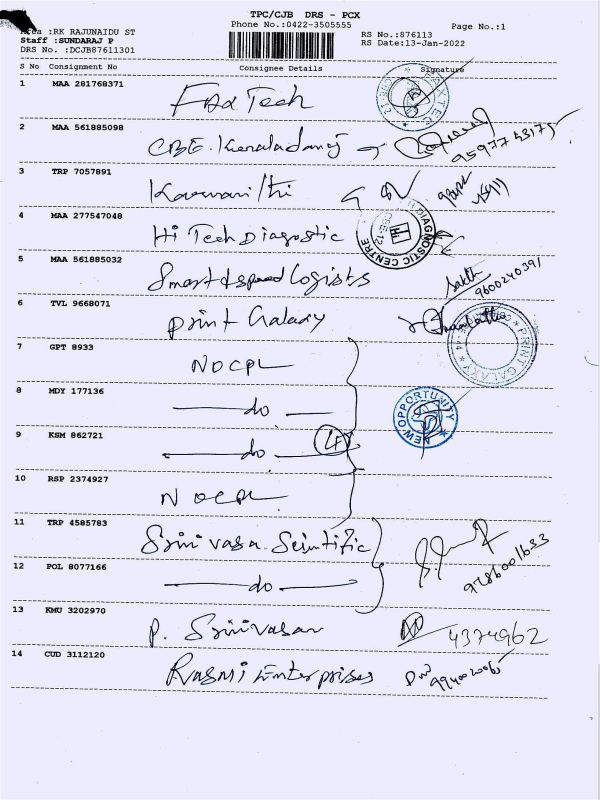 TPC/CJB DRS - PCX
Phone No.:0422-3505555
Page No.:1
Area :RK RAJUNAIDU ST
Staff :SUNDARAJ P
DRS No. :DCJB87611301
RS No.:876113
RS Date:13-Jan-2022
S No Consignment No Consignee Details Signature
1 MAA 281768371
2 MAA 561885098 CBE. Keraladany
9597743175
3 TRP 7057891
4 MAA 277547048 Hi Tech Diagostic
DIAGNOSTIC CENTRE
CBE-12
Hi
5 MAA 561885032 Smart & speed Logists
9600240391
6 TVL 9668071 print Galaxy
PRINT GALAXY
7 GPT 8933 NOCPL
8 MDY 177136 do
NEW OPPORTUNITY
9 KSM 862721 do 4
10 RSP 2374927 NOCPL
11 TRP 4585783 Srinivasa Scintific
9786001633
12 POL 8077166 do
13 KMU 3202970 P. Srinivasan 4374962
14 CUD 3112120 Rasmi Enterprises